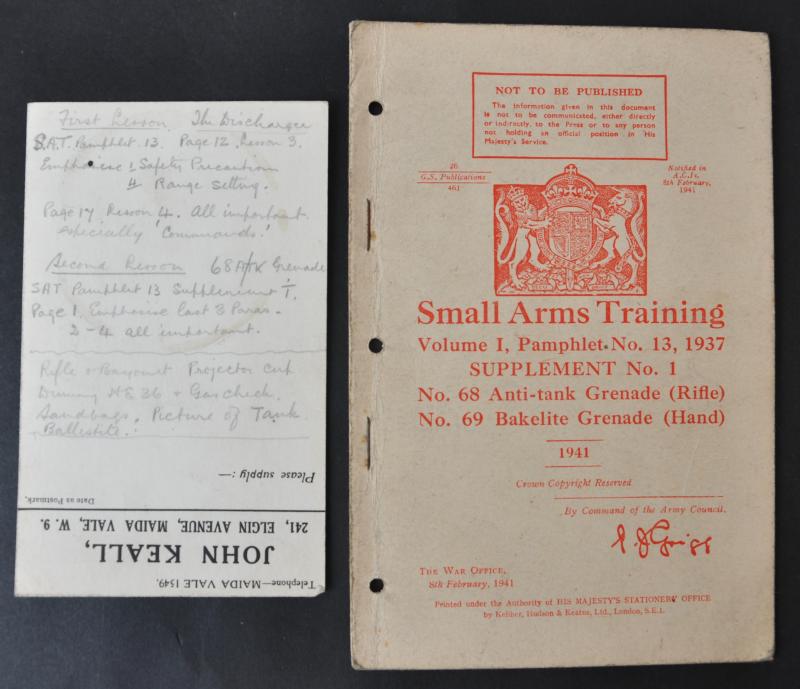 First Lesson. The Discharger
S.A.T. Pamphlet 13. Page 12. Lesson 3.
Emphasise 1 Safety Precautions
4 Range Setting.
Page 17 Lesson 4. All important
especially 'Commands.'
Second Lesson 68 A/TK Grenade
SAT Pamphlet 13 Supplement 1.
Page 1. Emphasise Last 3 Paras.
2-4 all important.
Rifle & Bayonet Projector cup
Dummy HE 36 & Gas check.
Sandbags. Picture of Tank
Ballistite.
Please supply:—
Date as Postmark.
241, ELGIN AVENUE, MAIDA VALE, W. 9.
JOHN KEALL,
Telephone—MAIDA VALE 1549.
NOT TO BE PUBLISHED
The information given in this document
is not to be communicated, either directly
or indirectly, to the Press or to any person
not holding an official position in His
Majesty's Service.
26
G.S. Publications
461
Notified in
A.C.Is.
8th February,
1941
Small Arms Training
Volume I, Pamphlet No. 13, 1937
SUPPLEMENT No. 1
No. 68 Anti-tank Grenade (Rifle)
No. 69 Bakelite Grenade (Hand)
1941
Crown Copyright Reserved
By Command of the Army Council,
P. J. Grigg
THE WAR OFFICE,
8th February, 1941
Printed under the Authority of HIS MAJESTY'S STATIONERY OFFICE
by Keliher, Hudson & Kearns, Ltd., London, S.E.1.